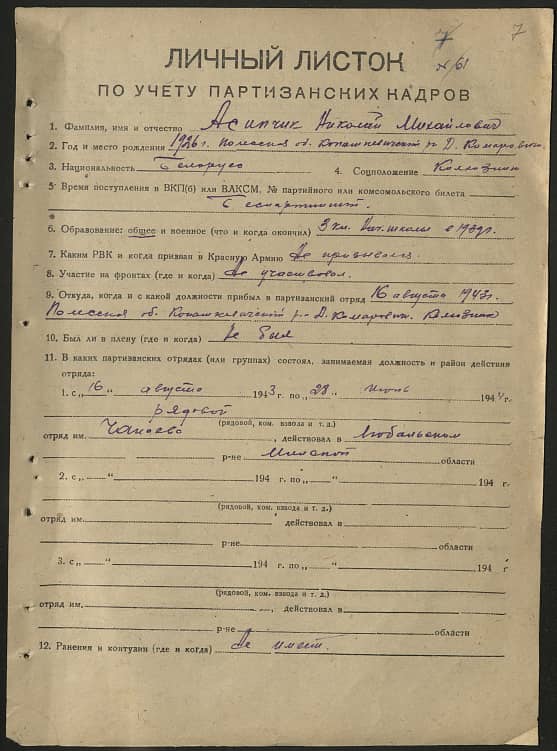 7
7
№ 61
ЛИЧНЫЙ ЛИСТОК
ПО УЧЕТУ ПАРТИЗАНСКИХ КАДРОВ
1. Фамилия, имя и отчество Асипчик Николай Михайлович
2. Год и место рождения 1926 г. Полесская об. Копаткевичский р-н Д. Комарович
3. Национальность Белорус 4. Соцположение Колхозник
5. Время поступления в ВКП(б) или ВЛКСМ, № партийного или комсомольского билета
Беспартийный.
6. Образование: общее и военное (что и когда окончил) 3 кл. Нач. школы в 1939 г.
7. Каким РВК и когда призван в Красную Армию Не призывался
8. Участие на фронтах (где и когда) Не участвовал.
9. Откуда, когда и с какой должности прибыл в партизанский отряд 16 августа 1943 г.
Полесская об. Копаткевичский р-н Д. Комарович. Колхозник
10. Был ли в плену (где и когда) Не был
11. В каких партизанских отрядах (или группах) состоял, занимаемая должность и район действия
отряда:
1. с „16„ августа 1943 г. по „28„ июнь 1944 г.
рядовой
(рядовой, ком. взвода и т. д.)
отряд им. Чапаева, действовал в Любаньском
р-не Минской области
2. с „ — “ 194 г. по „ — “ 194 г.
(рядовой, ком. взвода и т. д.)
отряд им. , действовал в
р-не области
3. с „ — “ 194 г. по „ — “ 194 г
(рядовой, ком. взвода и т. д.)
отряд им. , действовал в
р-не области
12. Ранения и контузии (где и когда) Не имеет.